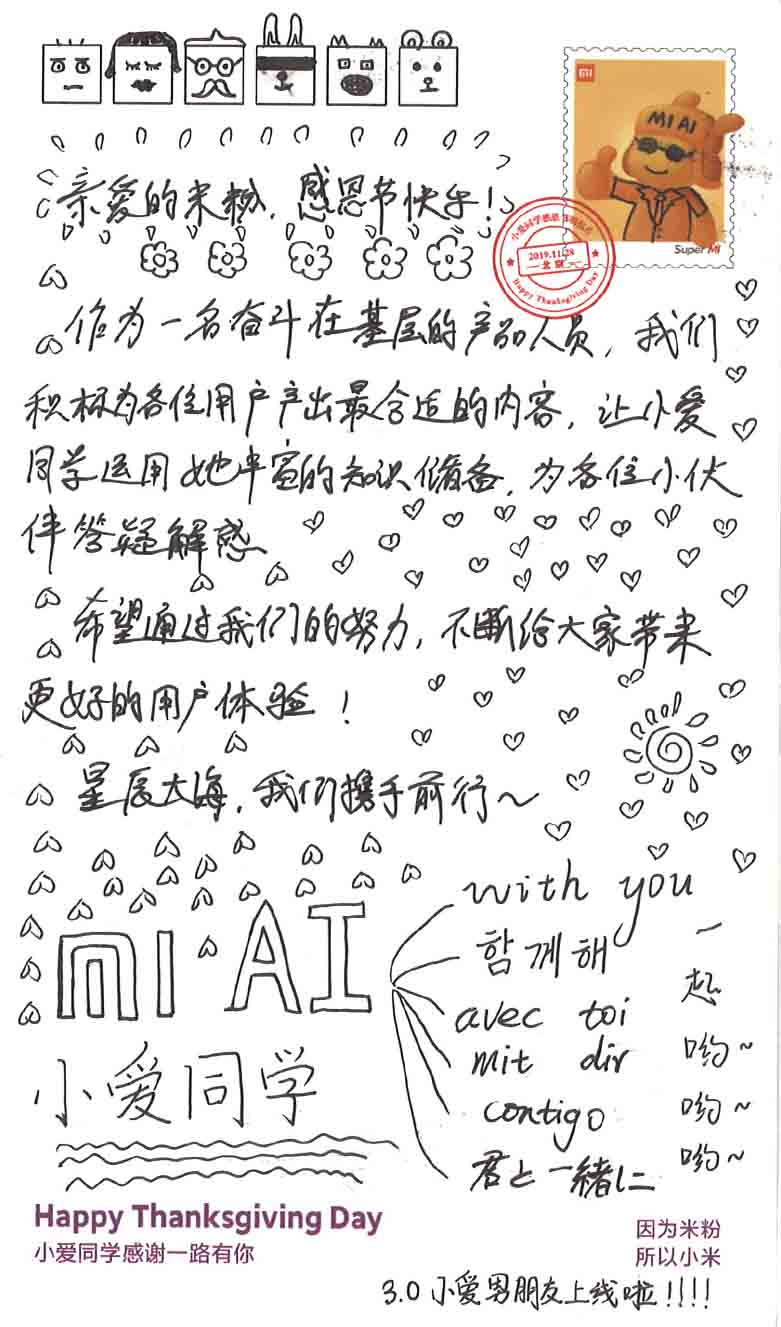 MI
MI AI
Super MI
亲爱的米粉，感恩节快乐！
2019.11.28
北京
Happy Thanksgiving Day
作为一名奋斗在基层的产品人员，我们
积极为各位用户产出最合适的内容，让小爱
同学运用她丰富的知识储备，为各位小伙
伴答疑解惑
希望通过我们的努力，不断给大家带来
更好的用户体验！
星辰大海，我们携手前行～
mi AI
小爱同学
with you
함께해
avec toi
mit dir
contigo
君と一緒に
一起哟～
哟～
哟～
Happy Thanksgiving Day
小爱同学感谢一路有你
因为米粉
所以小米
3.0 小爱男朋友上线啦！！！！